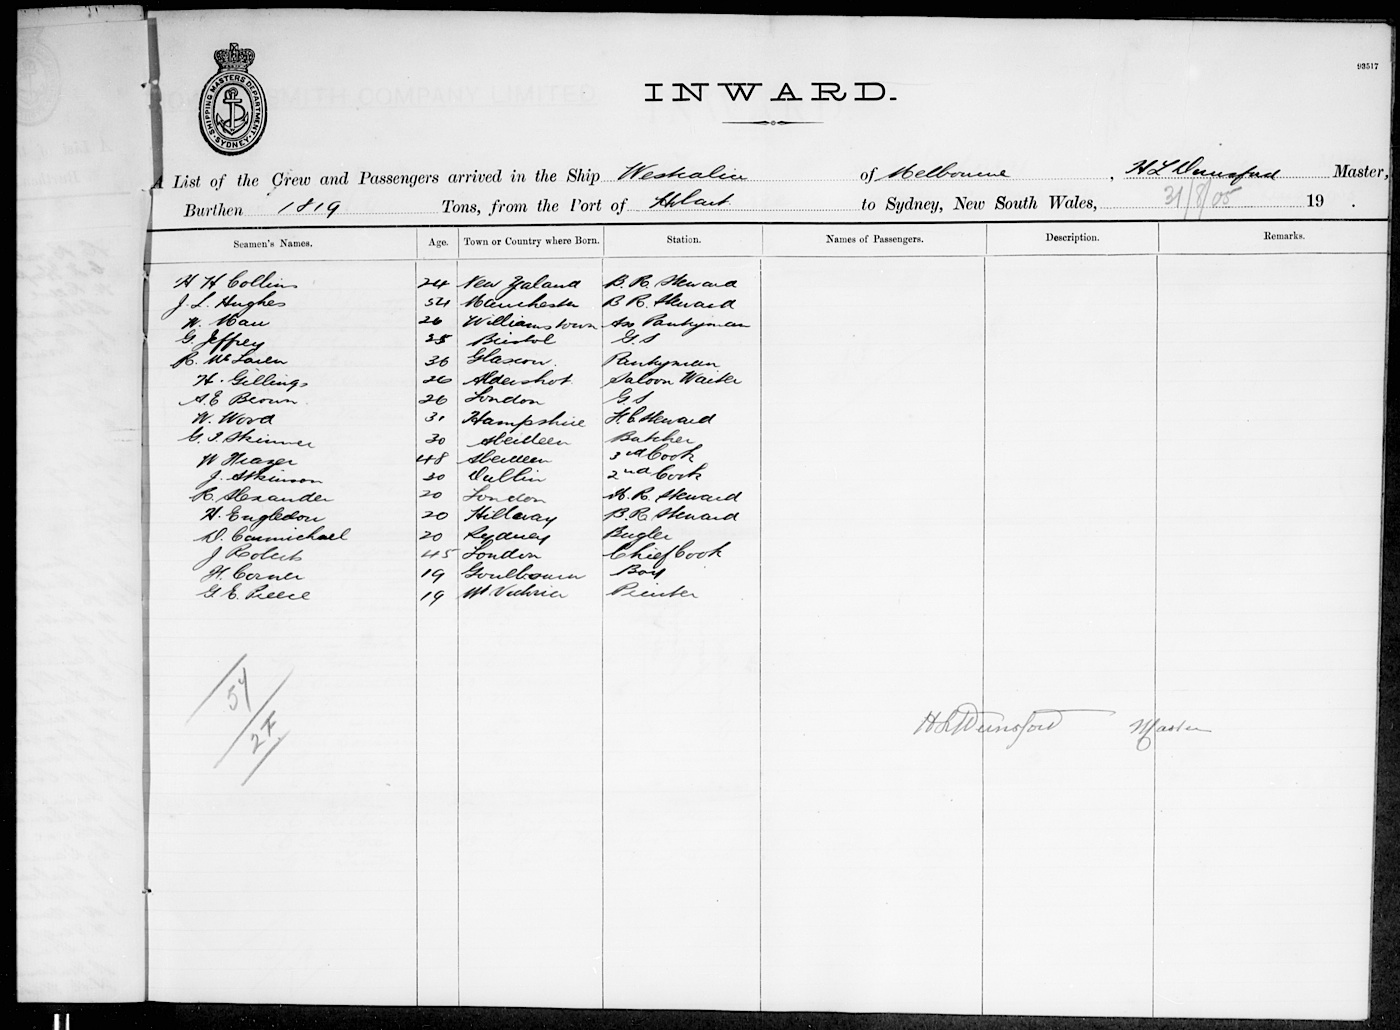 93517
SHIPPING MASTERS DEPARTMENT SYDNEY
INWARD.
A List of the Crew and Passengers arrived in the Ship Westralia of Melbourne, H L Dunsford Master,
Burthen 1819 Tons, from the Port of Hobart to Sydney, New South Wales, 31/8/05 19 .
Seamen's Names. Age. Town or Country where Born. Station. Names of Passengers. Description. Remarks.
H H Collins 24 New Zealand B. R. Steward
J. L. Hughes 54 Manchester B R. Steward
W. Man 26 Williamstown Ass Pantryman
G Jeffrey 25 Bristol G.S
R. McLaren 36 Glasgow. Pantryman
H. Gillings 26 Aldershot Saloon Waiter
A. E Brown 26 London G S
W. Word 31 Hampshire F. C Steward
G. I. Skinner 30 Aberdeen Butcher
W Frazer 48 Aberdeen 3rd Cook
J. Atkinson 30 Dublin 2nd Cook
R. Alexander 20 London M. R. Steward
H. Engledon 20 B. R. Steward
D. Carmichael 20 Sydney Bugler
J Roberts 45 London Chief Cook
H. Corner 19 Goulbourn Boy
G. E. Reece 19 Mt Victoria Printer
54
2F
H L Dunsford Master